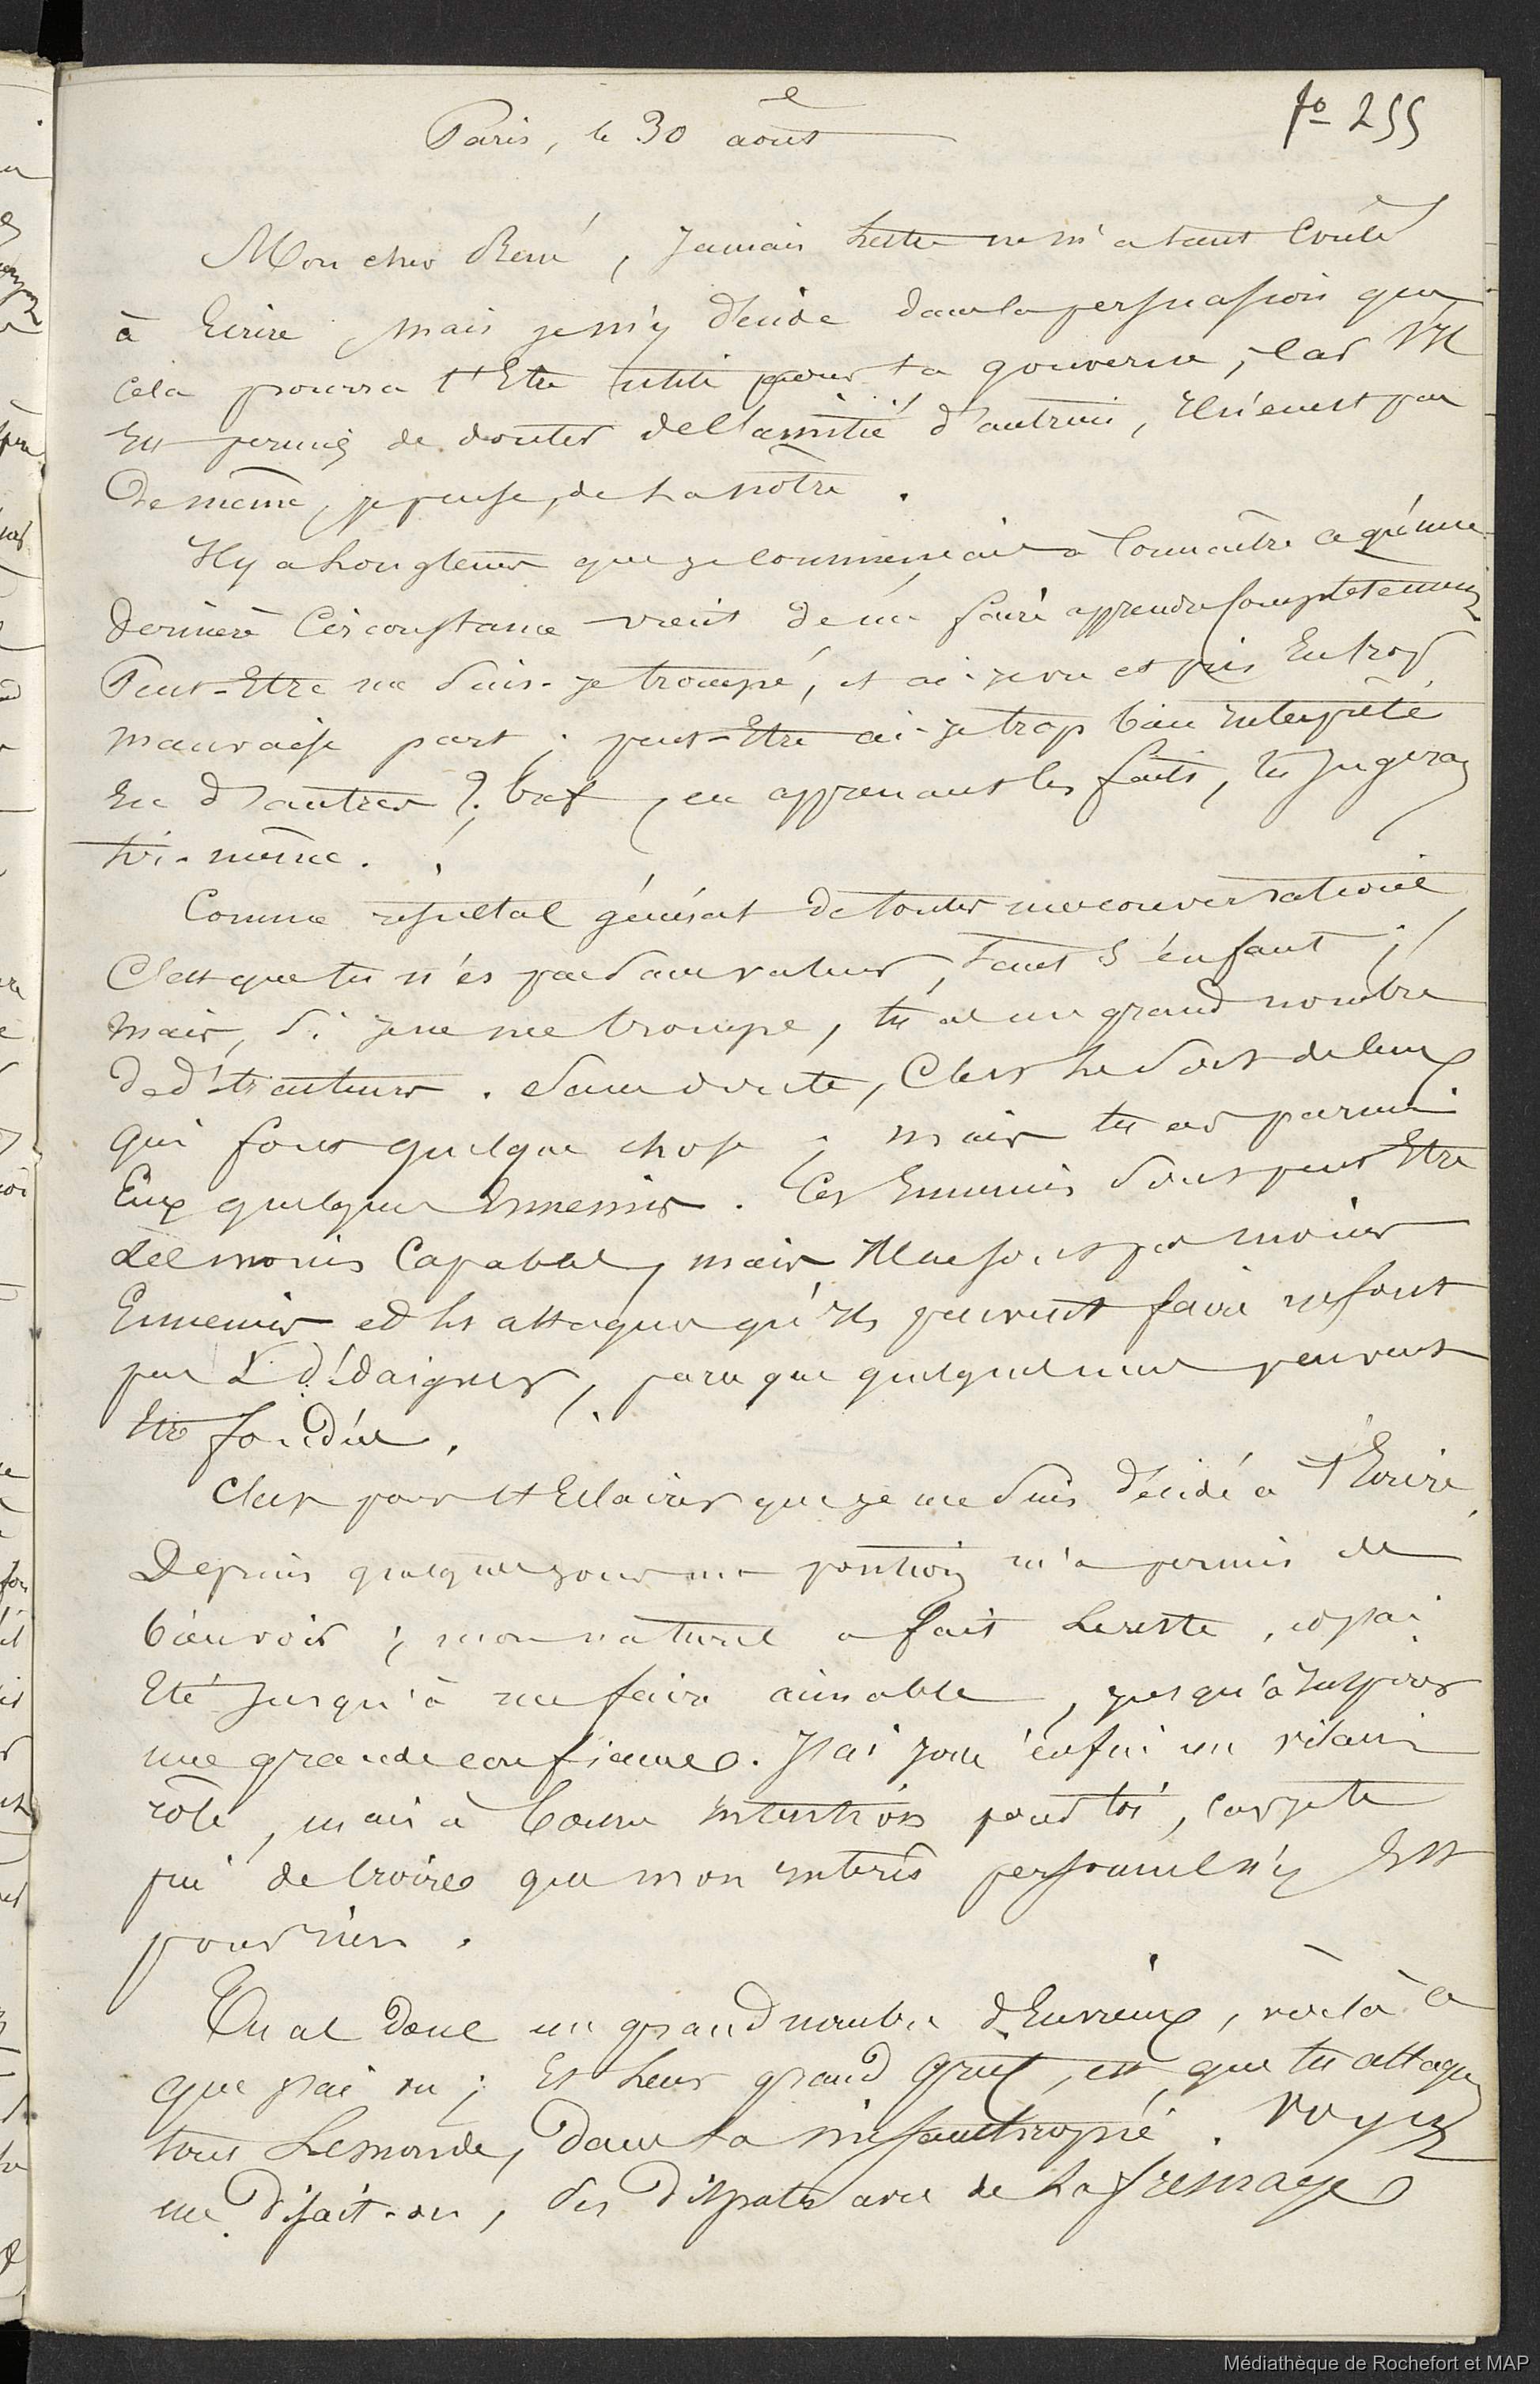 fo 255
Paris, le 30 août
Mon cher René, Jamais lettre ne m'a tant coûté
à Ecrire mais je m'y décide dans la persuasion que
cela pourra t'Etre utile pour ta gouverne, car s'Il
Est permis de douter de l'amitié d'autrui, Il n'en est pas
de même, je pense, de la nôtre.
Il y a longtems que je commençais à Connaître ce qu'une
dernière Circonstance vient de me faire apprendre complètement
Peut-Etre me suis-je trompé, et ai-je vu et pris En trop
mauvaise part ; peut-Etre ai-je trop bien Interprêté
En d'autres ? bref, en apprenant les faits, tu Jugeras
toi-même.
Comme résultat général de toutes mes conversations
C'est que tu n'es pas sans valeur, tant s'en faut ;
mais, si je ne me trompe, tu as un grand nombre
de détracteurs. Sans doute, C'est le sort de ceux
qui font quelque chose ; mais tu as parmi
Eux quelques Ennemis. Ces Ennemis sont peut Etre
des moins Capables, mais Ils ne sont pas moins
Ennemis et les attaques qu'Ils peuvent faire ne sont
pas à dédaigner, parce que quelques unes peuvent
Etre fondées.
C'est pour t'Eclairer que je me suis décidé à t'Ecrire.
Depuis quelques jours ma position m'a permis de
bien voir ; mon naturel a fait le reste, et j'ai
Eté Jusqu'à me faire aimable, jusqu'à Inspirer
une grande confiance. J'ai joué enfin un vilain
rôle, mais à bonne Intention pour toi, car je te
prie de Croire que mon Intérêt personnel n'y Est
pour rien.
Tu as donc un grand nombre d'Envieux, voilà ce
que j'ai vu ; Et leur grand Grief, est, que tu attaques
tout Le monde, dans ta misanthropie. Voyez
me disait-on, ses disputes avec de Lafresnaye
Médiathèque de Rochefort et MAP